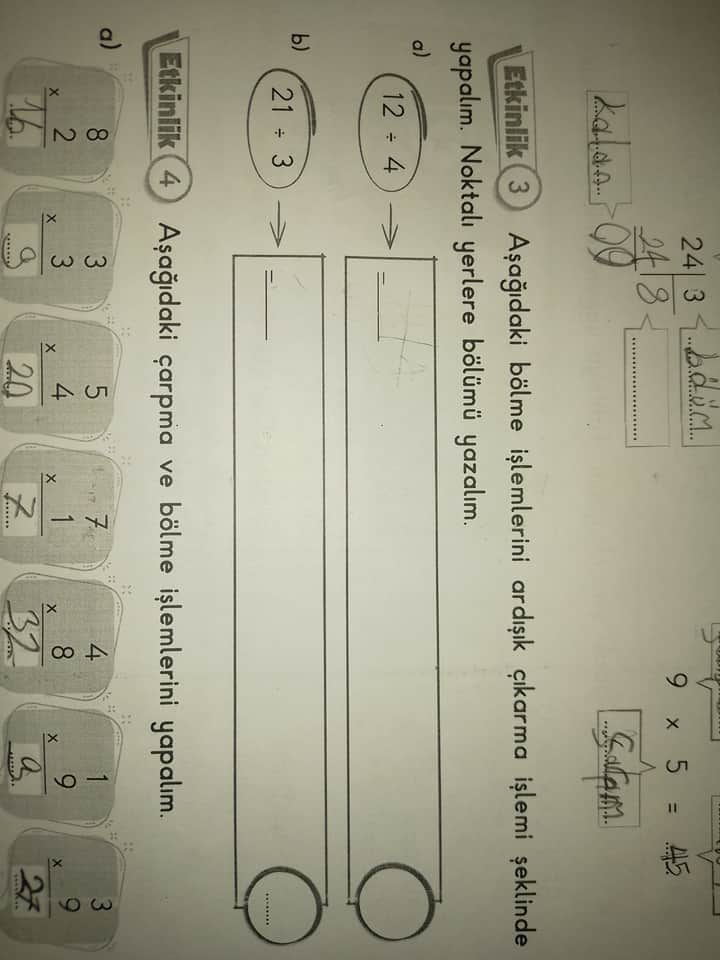 24 3 bölüm
24 8
00
kalan
9 x 5 = 45
Çarpım
Etkinlik 3 Aşağıdaki bölme işlemlerini ardışık çıkarma işlemi şeklinde
yapalım. Noktalı yerlere bölümü yazalım.
a) 12 ÷ 4 → =
b) 21 ÷ 3 → = ........
Etkinlik 4 Aşağıdaki çarpma ve bölme işlemlerini yapalım.
a) 8 3 5 7 4 1 3
x 2 x 3 x 4 x 1 x 8 x 9 x 9
16 9 20 7 32 9 27